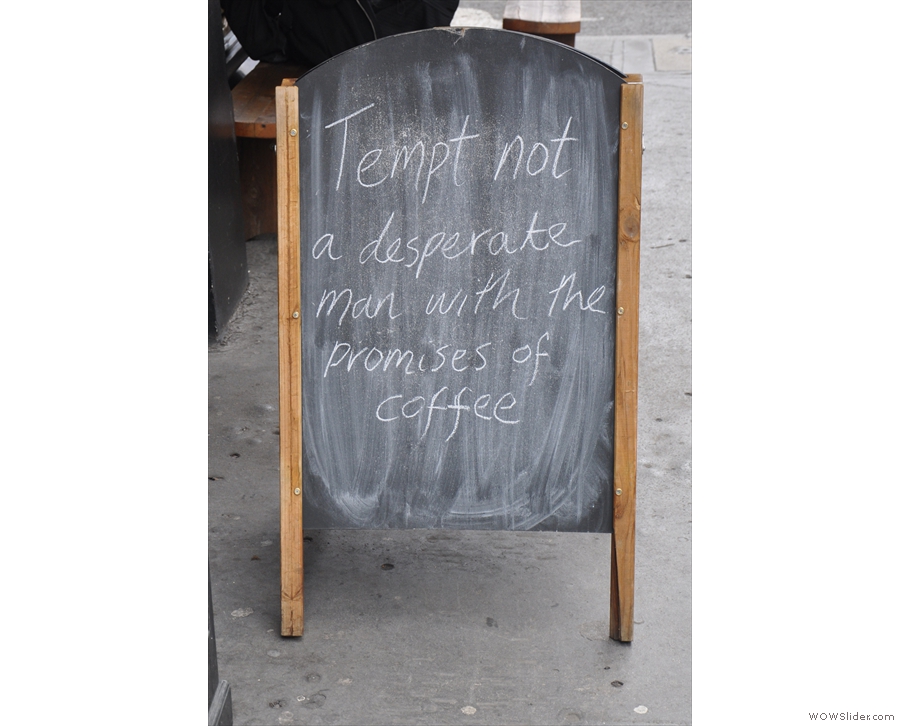 Tempt not
a desperate
man with the
promises of
coffee
WOWSlider.com